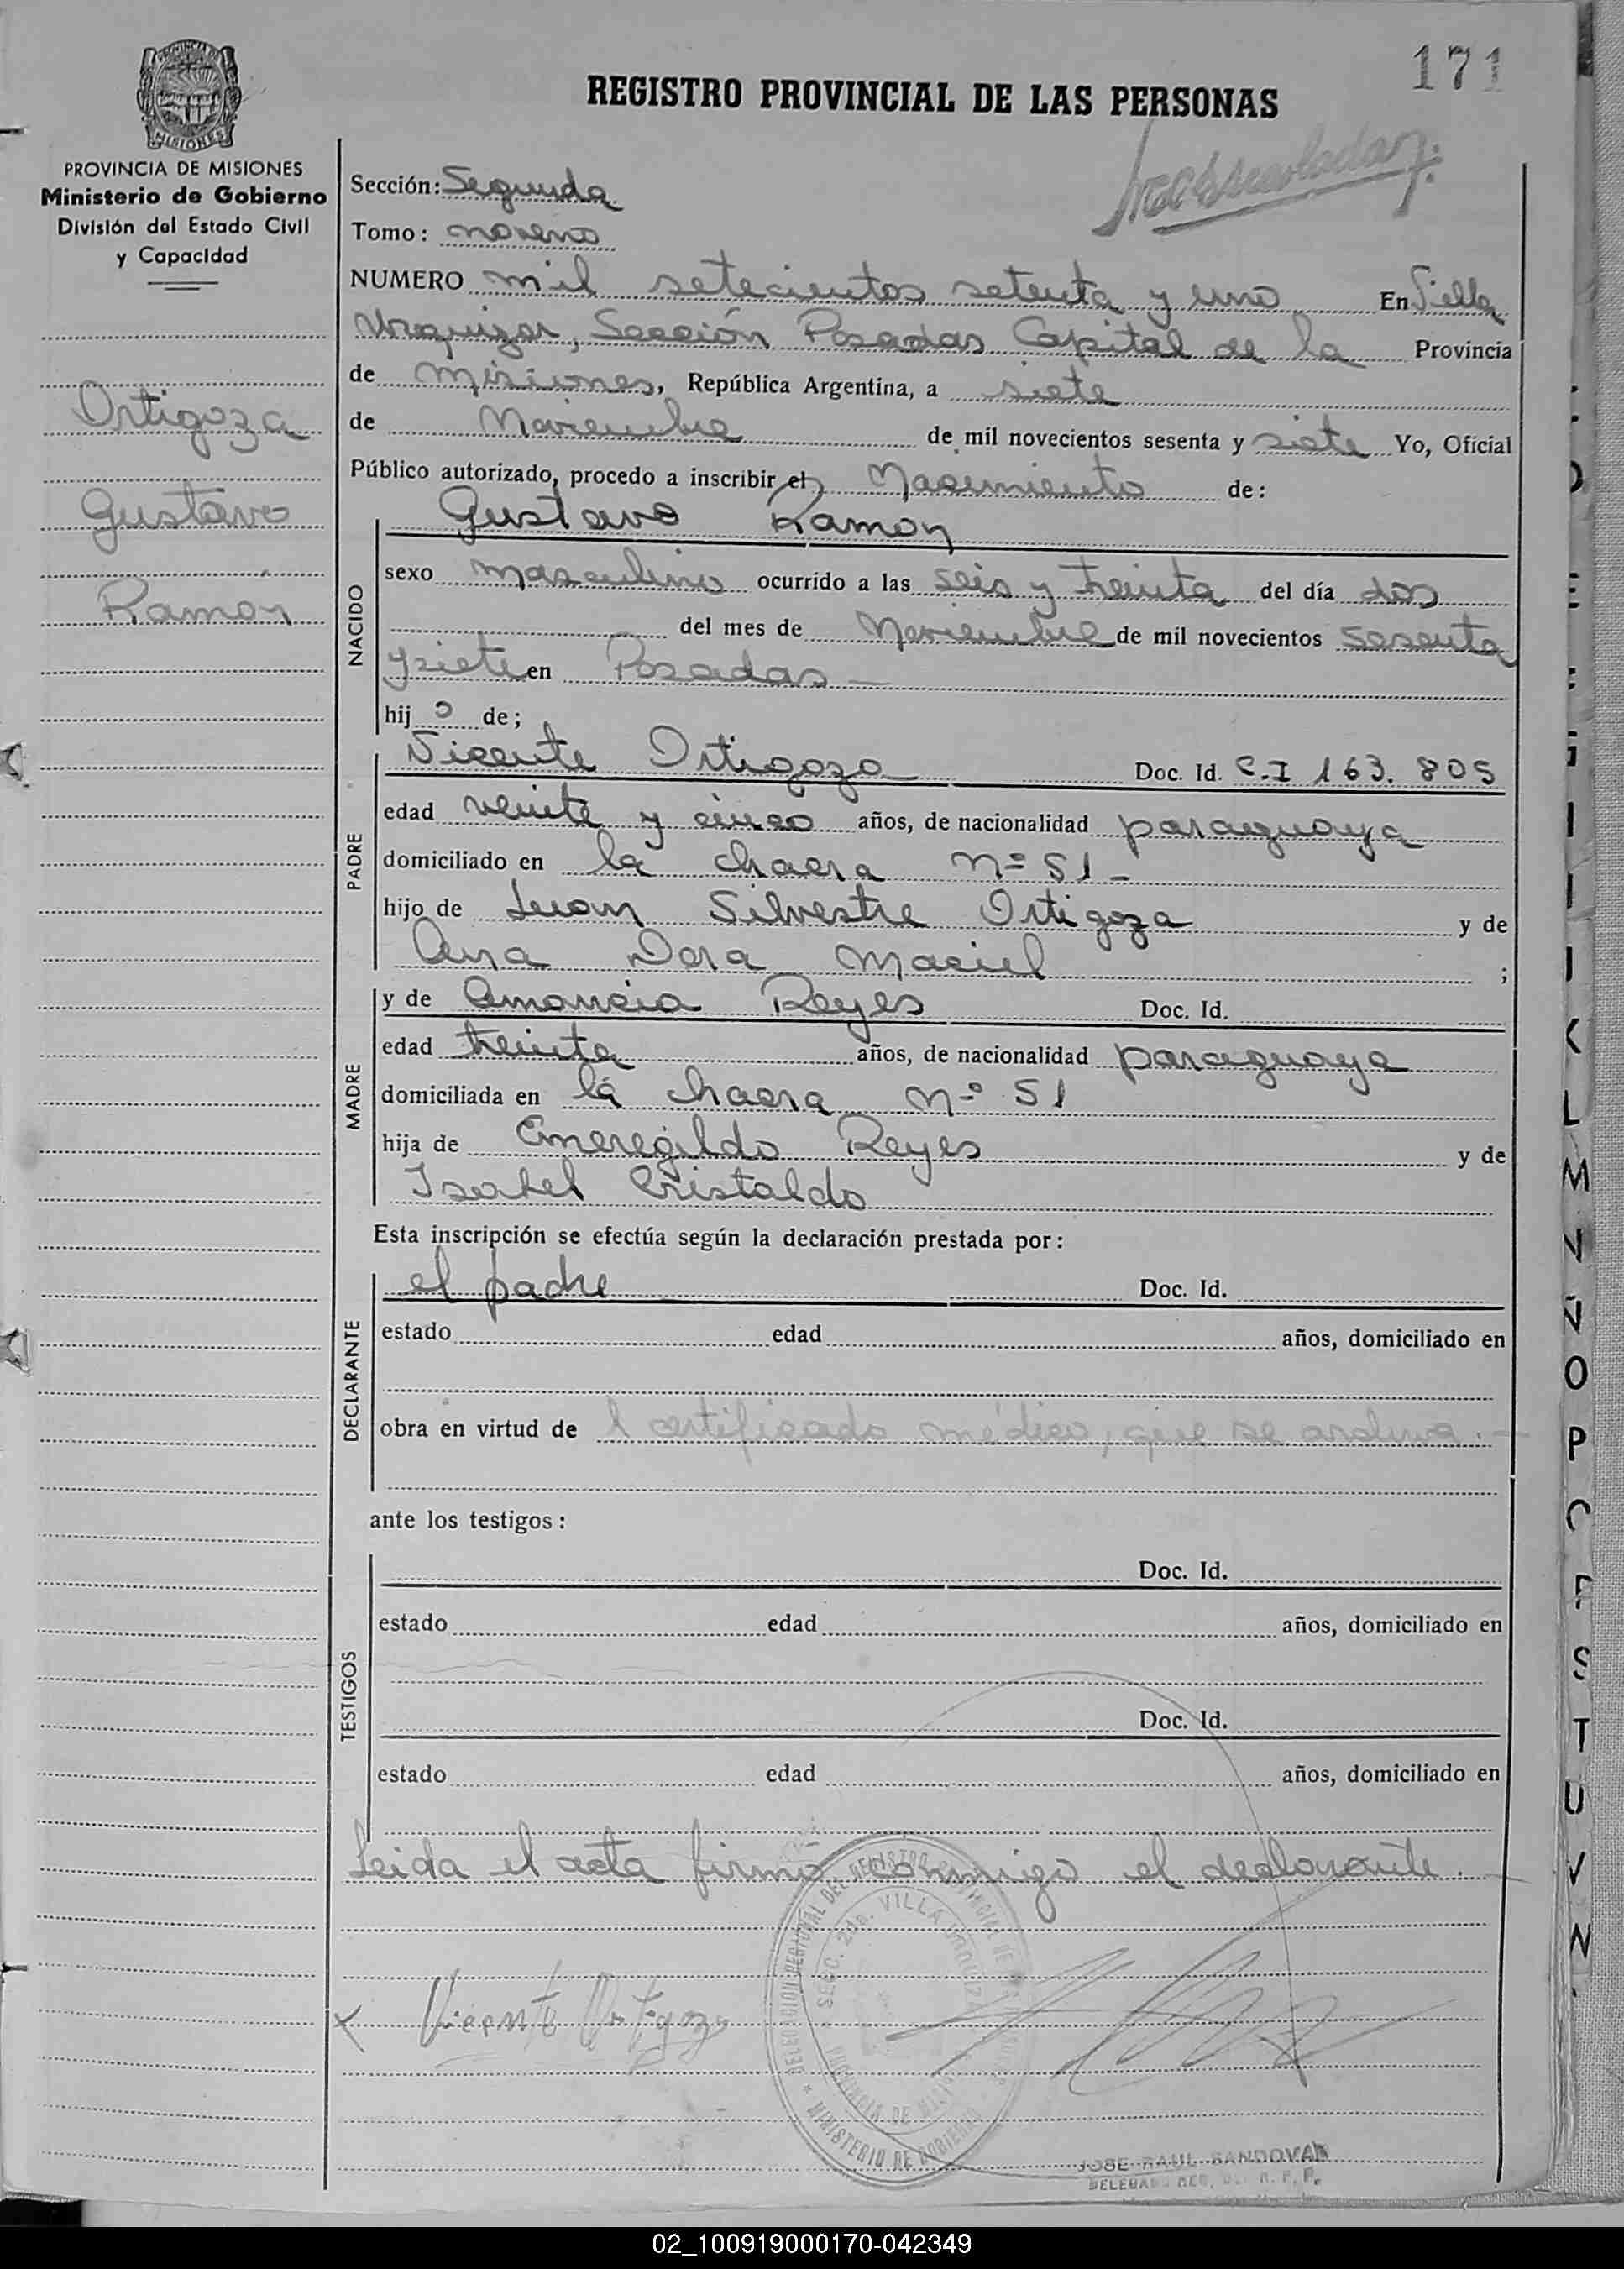 171
REGISTRO PROVINCIAL DE LAS PERSONAS
PROVINCIA DE MISIONES
MISIONES
PROVINCIA DE MISIONES
Ministerio de Gobierno
División del Estado Civil
y Capacidad
Ortigoza
Gustavo
Ramón
Sección: Segunda
Tomo: noveno
NUMERO mil setecientos setenta y uno En Villa
Urquiza, Sección Posadas Capital de la Provincia
de Misiones, República Argentina, a siete
de Noviembre de mil novecientos sesenta y siete Yo, Oficial
Público autorizado, procedo a inscribir el Nacimiento de:
Gustavo Ramon
NACIDO
sexo masculino ocurrido a las seis y treinta del día dos
del mes de Noviembre de mil novecientos sesenta
y siete en Posadas —
hij o de;
PADRE
Vicente Ortigoza Doc. Id. C.I 163.805
edad veinte y cinco años, de nacionalidad paraguaya
domiciliado en la chacra nº 51 -
hijo de Juan Silvestre Ortigoza y de
Ana Dora Maciel ;
MADRE
y de Amancia Reyes Doc. Id.
edad treinta años, de nacionalidad paraguaya
domiciliada en la chacra nº 51
hija de Emeregildo Reyes y de
Isabel Cristaldo
Esta inscripción se efectúa según la declaración prestada por:
DECLARANTE
el padre Doc. Id.
estado edad años, domiciliado en
obra en virtud de l certificado médico, que se archiva. -
ante los testigos:
TESTIGOS
Doc. Id.
estado edad años, domiciliado en
Doc. Id.
estado edad años, domiciliado en
Leida el acta firmó conmigo el declarante.
x Vicente Ortigoza
DELEGACION REGIONAL DEL REGISTRO PROVINCIAL DE LAS
SECC. 2da. VILLA URQUIZA
PROVINCIA DE MISIONES
* MINISTERIO DE GOBIERNO
JOSE RAUL SANDOVAL
DELEGADO REG. R. P. P.
K
L
M
N
Ñ
O
P
Q
R
S
T
U
V
02_100919000170-042349